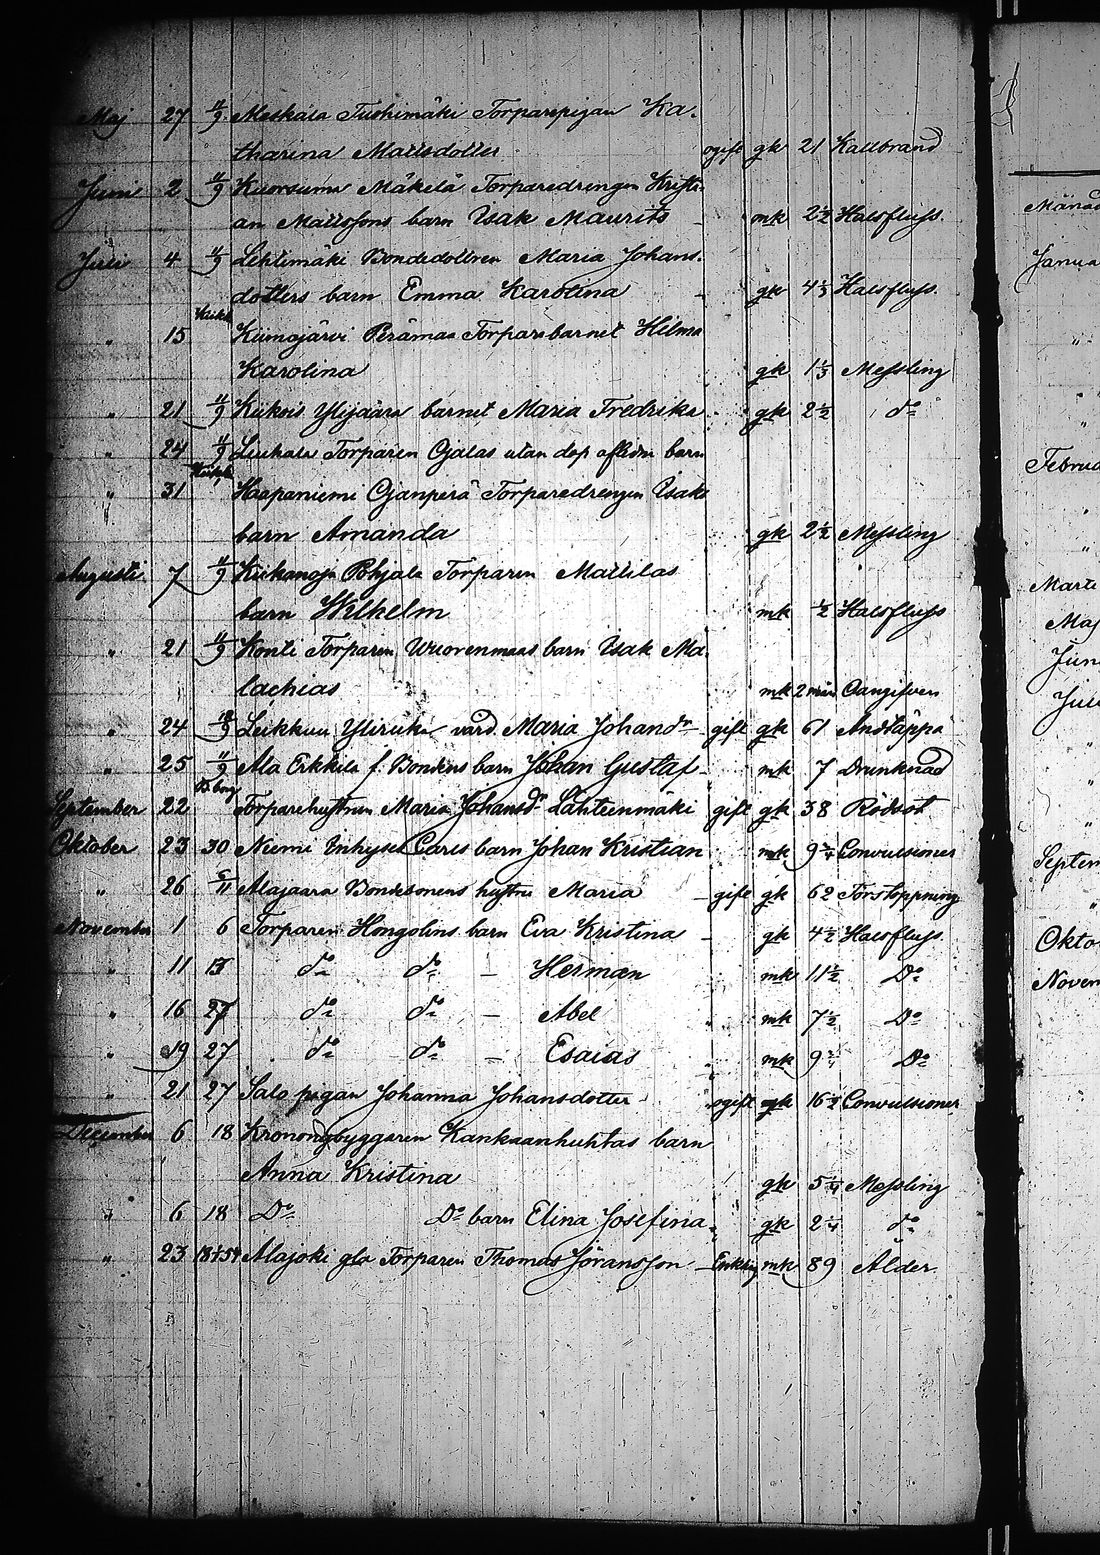 Maj 27 11/9 Meskala Tuohimäki Torparepigan Ka-
tharina Mattsdotter ogift gk 21 Kallbrand
Juni 2 11/9 Kuorsuma Mäkelä Torparedrengen Kristi-
an Mattssons barn Isak Maurits mk 2½ Halsfluss.
Juli 4 11/9 Lehtimäki Bondedottren Maria Johans-
dotters barn Emma Karolina gk 4⅓ Halsfluss.
" 15 Kiimajärvi Perämaa Torparebarnet Hilma
Karolina gk 1⅓ Messling
" 21 11/9 Kiikois Ylijaara barnet Maria Fredrika gk 2½ do
" 24 11/9 Torparen Ojalas utan dop aflidna barn
" 31 Haapaniemi Ojanperä Torparedrengen Isaks
barn Amanda gk 2½ Messling
Augusti 7 11/9 Kiikanoja Pohjala Torparen Mattilas
barn Wilhelm mk ½ Halsfluss
" 21 11/9 Konti Torparen Wuorenmaas barn Isak Ma-
lachias mk 2 mån Oangifven
" 24 18/9 Leikkuu värd. Maria Johansdr gift gk 61 Andtäppa
" 25 11/9 Ala Erkkilä f. Bondens barn Johan Gustaf mk 7 Drunknad
September 22 Torparehustrun Maria Johansdr Lähteenmäki gift gk 38 Rödsot
Oktober 23 30 Niemi Inhyses Carls barn Johan Kristian mk 9 Convulsioner
" 26 6/11 Alajaara Bondesonens hustru Maria gift gk 62 Förstoppning
November 1 6 Torparen Hongolins barn Eva Kristina gk 4½ Halsfluss.
" 11 13 do do — Herman mk 11½ Do
" 16 27 do do — Abel mk 7½ Do
" 19 27 do do — Esaias mk 9 Do
" 21 27 Salo pigan Johanna Johansdotter ogift gk 16½ Convulsioner
December 6 18 Kronongbyggaren Kankaanhuhtas barn
Anna Kristina gk 5¼ Messling
" 6 18 Do Do barn Elina Josefina gk 2¼ do
" 23 Alajoki gla Torparen Thomas Göransson Enkling mk 89 Ålder.
Månad
Janua
"
"
Februa
"
"
Marti
Maj
Juni
Juli
"
"
Septem
"
Oktob
Novem